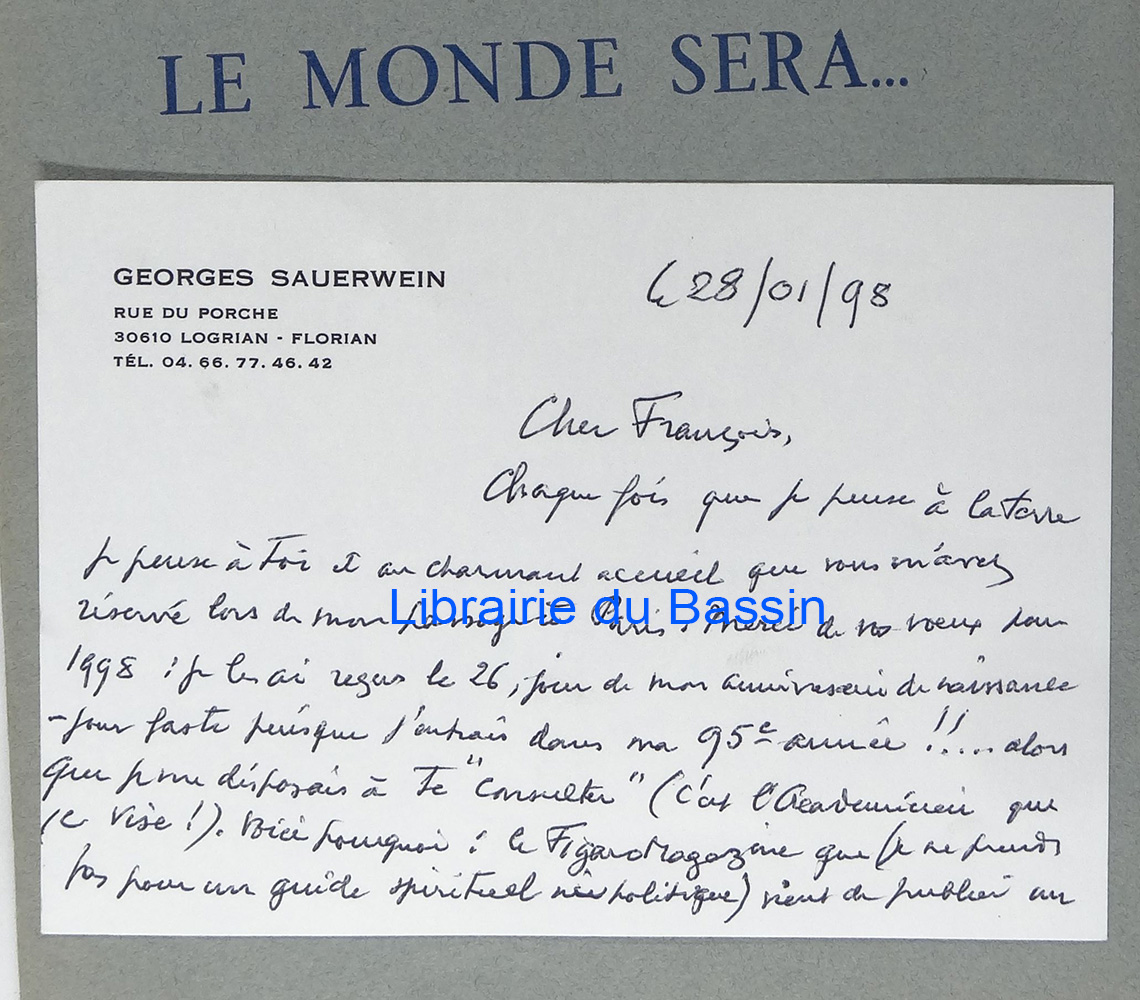 LE MONDE SERA...
GEORGES SAUERWEIN
RUE DU PORCHE
30610 LOGRIAN - FLORIAN
TÉL. 04. 66. 77. 46. 42
Le 28/01/98
Cher François,
Chaque fois que je pense à la Terre
je pense à Toi et au charmant accueil que vous m'avez
réservé lors de mon passage à Paris. Merci de vos voeux pour
Librairie du Bassin
1998 : je les ai reçus le 26, jour de mon anniversaire de naissance
- jour faste puisque j'entrais dans ma 95e année !!.... alors
que je me disposais à Te "consulter" (c'est l'Académicien que
je vise !). Voici pourquoi : le Figaro Magazine que (je ne prends
pas pour un guide spirituel ni politique) vient de publier un